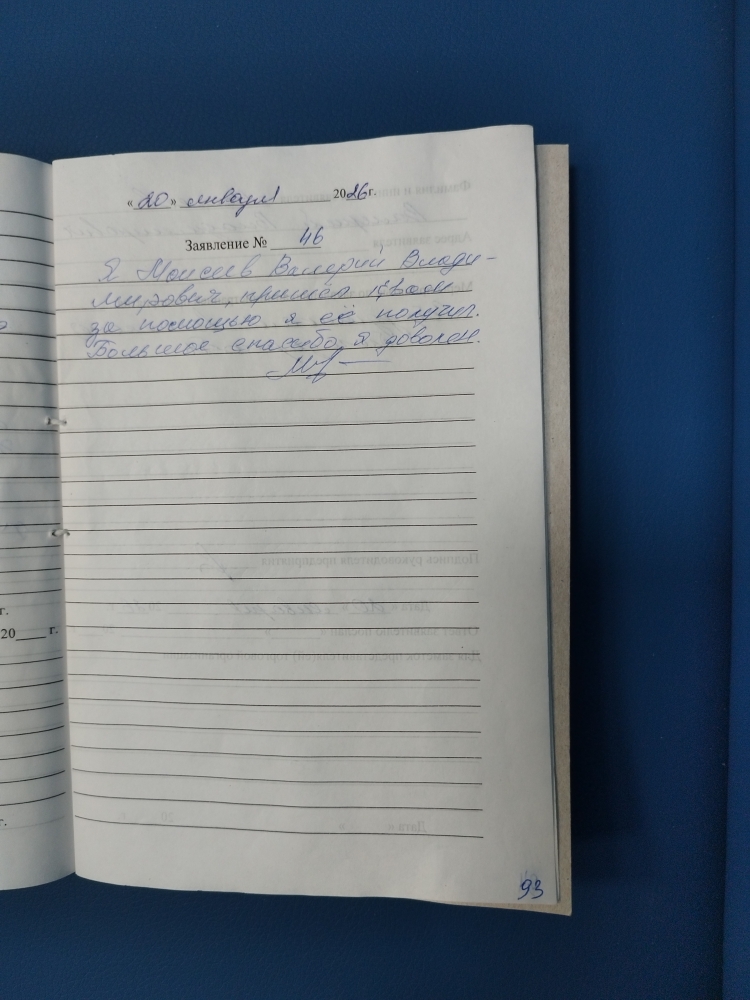 « 20 » января 2026 г.
Заявление № 46
Я Моисеев Валерий Влади-
мирович, пришёл к Вам
за помощью я её получил.
Большое спасибо, я доволен.
г.
20 г.
г.
93